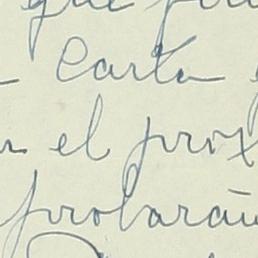 que
Carta
el prox
probarán